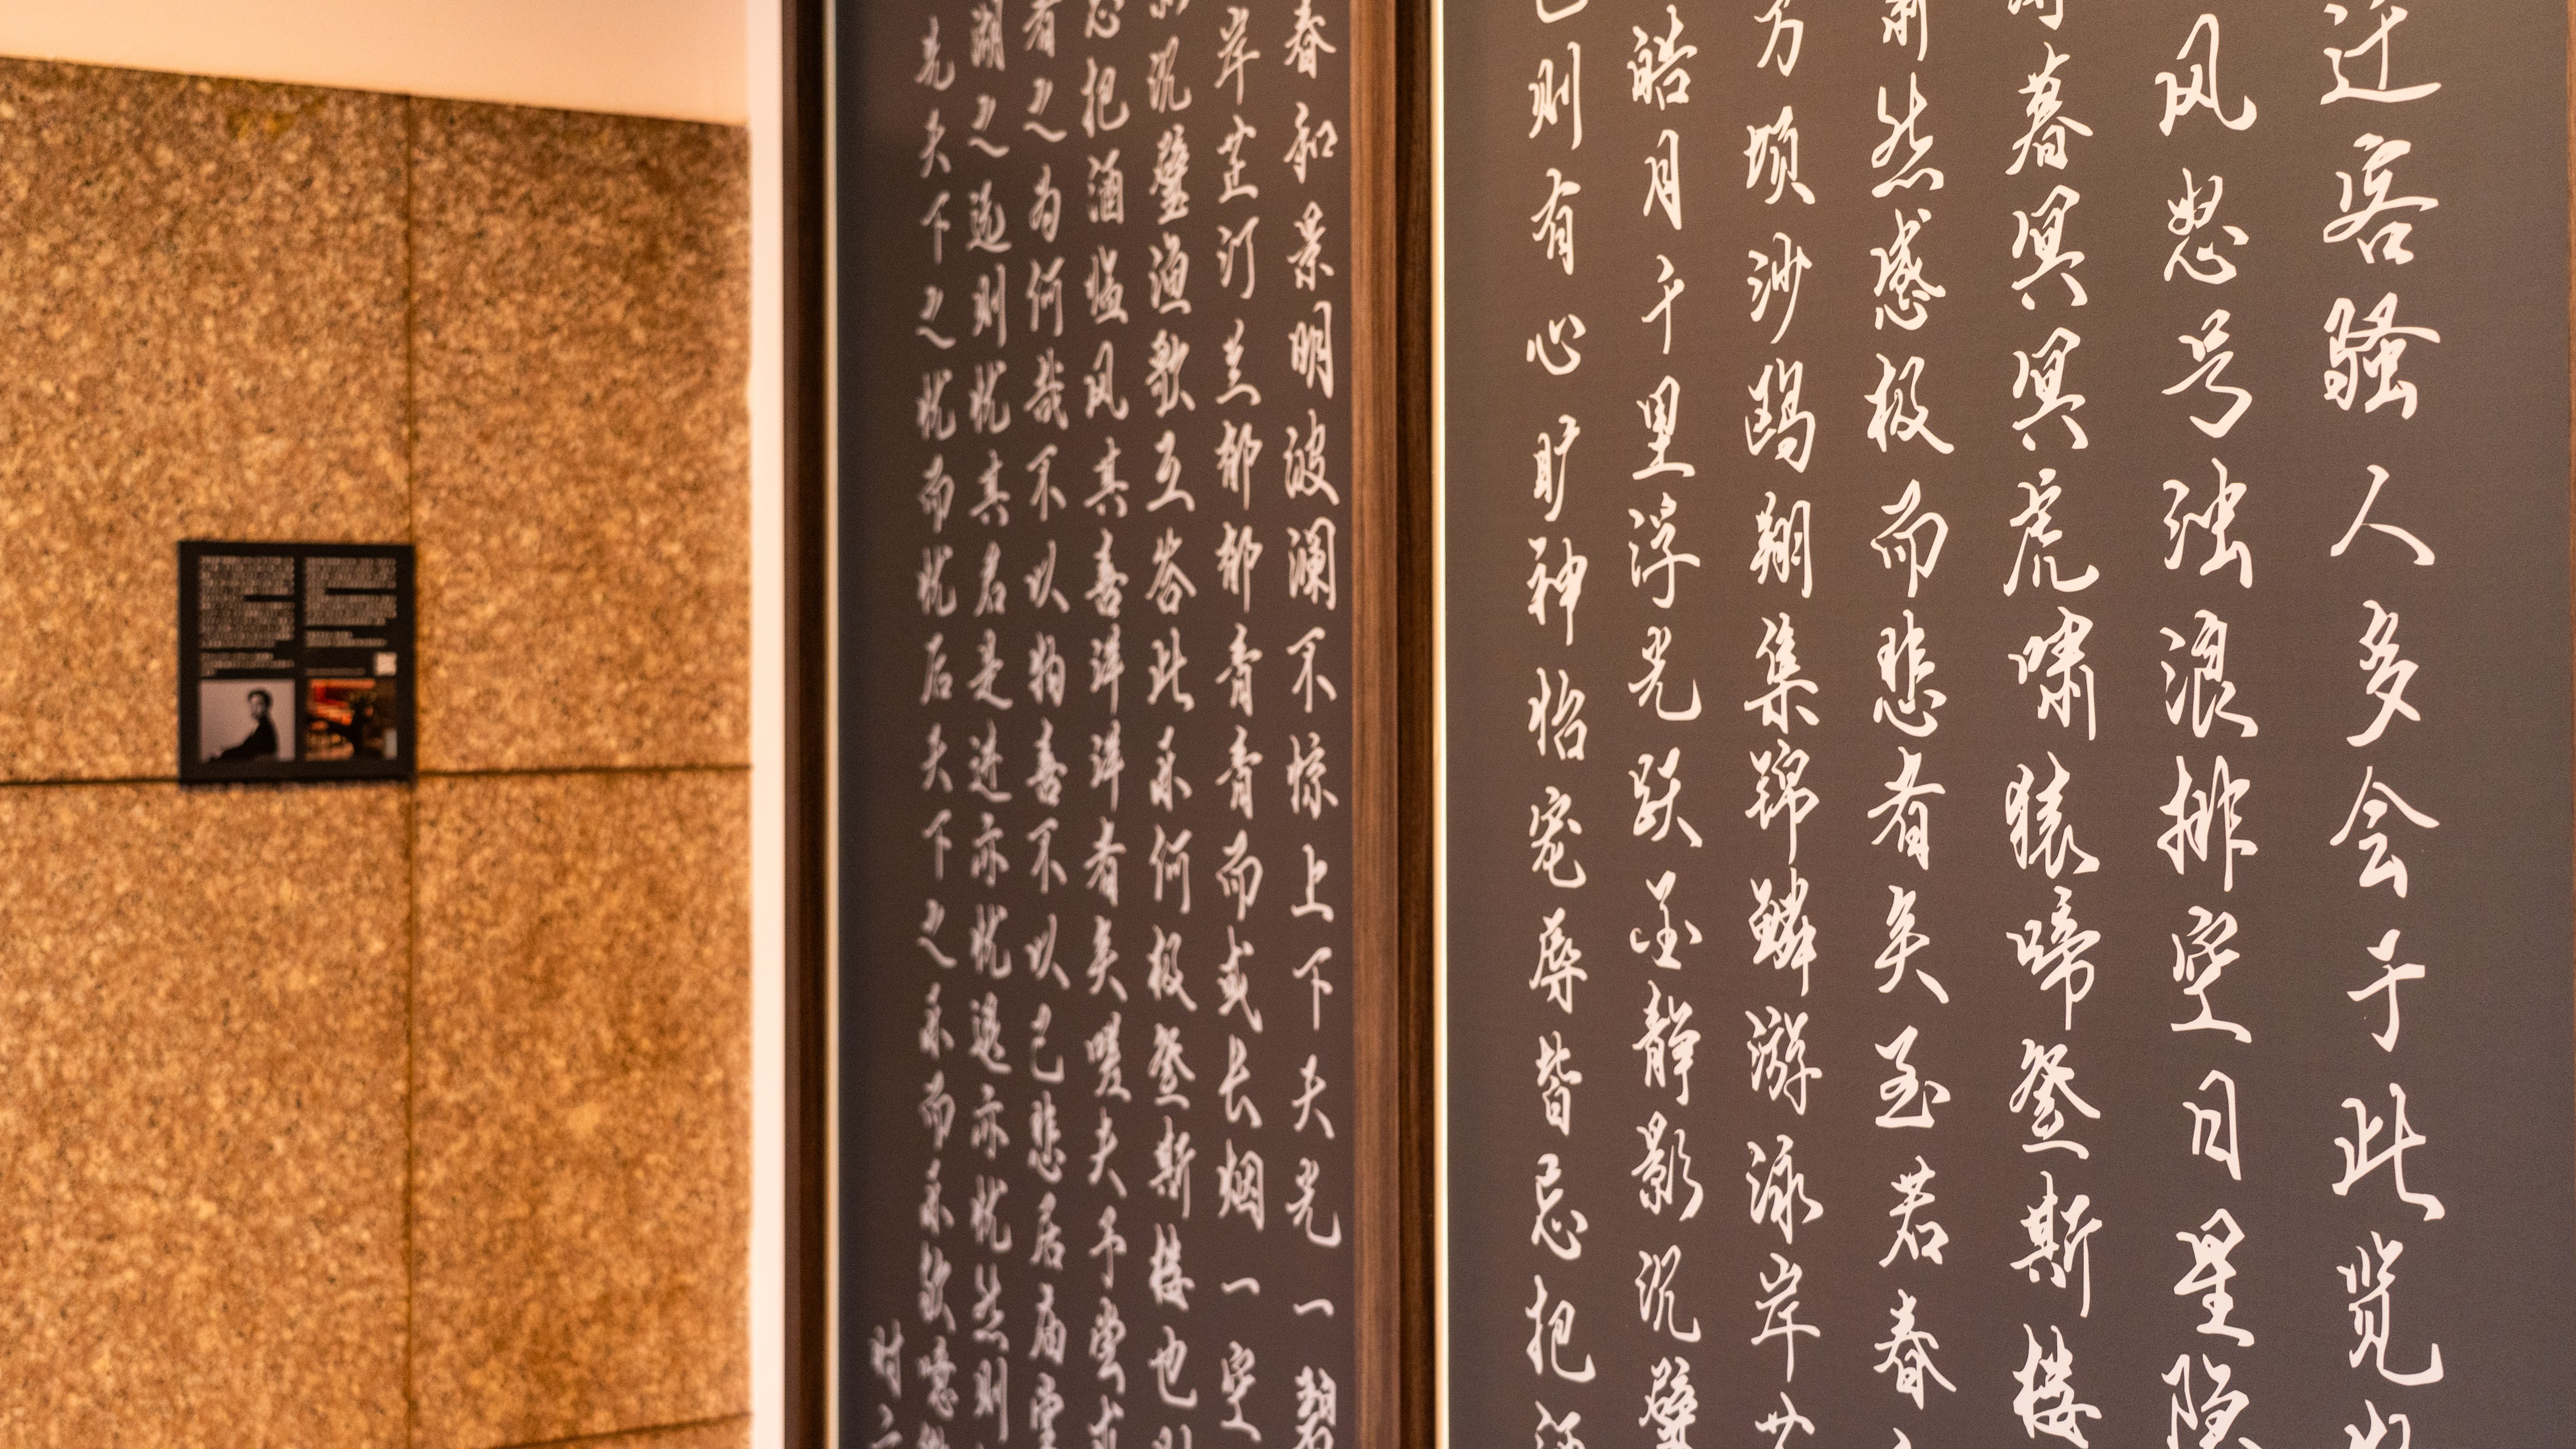 迁客骚人多会于此览
风怒号浊浪排空日星隐
暮冥冥虎啸猿啼登斯楼
然感极而悲者矣至若春
万顷沙鸥翔集锦鳞游泳岸
皓月千里浮光跃金静影沉璧
则有心旷神怡宠辱皆忘把
春和景明波澜不惊上下天光一碧
岸芷汀兰郁郁青青而或长烟一空
沉璧渔歌互答此乐何极登斯楼也则
忘把酒临风其喜洋洋者矣嗟夫予尝求
者之为何哉不以物喜不以己悲居庙堂
湖之远则忧其君是进亦忧退亦忧然则
先天下之忧而忧后天下之乐而乐欤噫微
时六